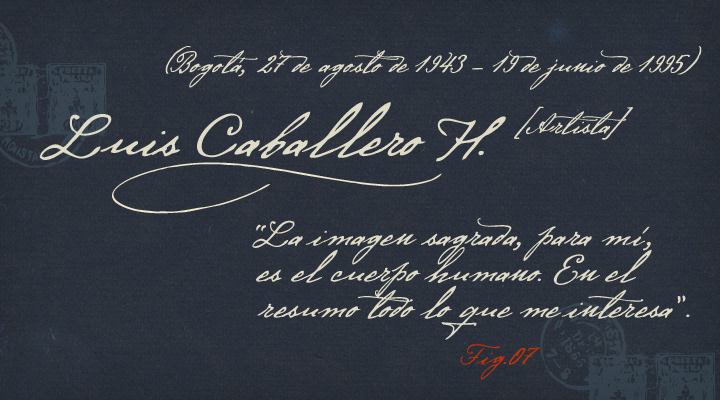 (Bogotá, 27 de agosto de 1943 – 19 de junio de 1995)
Luis Caballero H. [Artista]
"La imagen sagrada, para mí,
es el cuerpo humano. En el
resumo todo lo que me interesa".
Fig.07